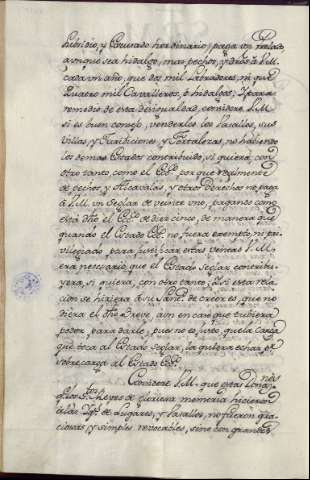 Subsidio, y Escusado hordinario, paga un Prelado
aunque sea hidalgo, mas pechos, y drõs à S.M.
cada un año, que dos mil Labradores, ni que
Quatro mil Cavalleros, è hidalgos; Y para
remedio de esta desigualdad, considere S.M.
si es buen consejo, venderles los Vasallos, sus
Villas, y Jurisdiciones, y Fortalezas, no habiendo
los demas Estados contribuido, si quiera, con
otro tanto como el Ecc.º porque regularmente
de pechos, y Alcavalas, y otros Derechos no paga
à S.M. un Seglar de veinte uno, pagando como
está dhõ el Ecc.º de diez cinco, de manera que
quando el Estado Ecc.º no fuera exemto, ni pri-
vilegiado para justificar estas ventas S.M.
era necesario que el Estado Seglar contribu-
yera, si quiera, con otro tanto; Y si esta rela-
cion se hiziera à su Sant.d de creer es, que no
diera el dhõ Breve, aun en caso que tubiera
poder, para darle, pues no es justo que la Carga
que toca al Estado Seglar, la quiera echar, y
sobrecarga al Estado Ecc.º
Considere S.M. que estas Donaz.nes
q̃ los S.res Reyes de gloriosa memoria hicieron
à las Yg.as de Lugares, y Vasallos, no fueron gra-
ciosas, y simples revocables, sino con grandes